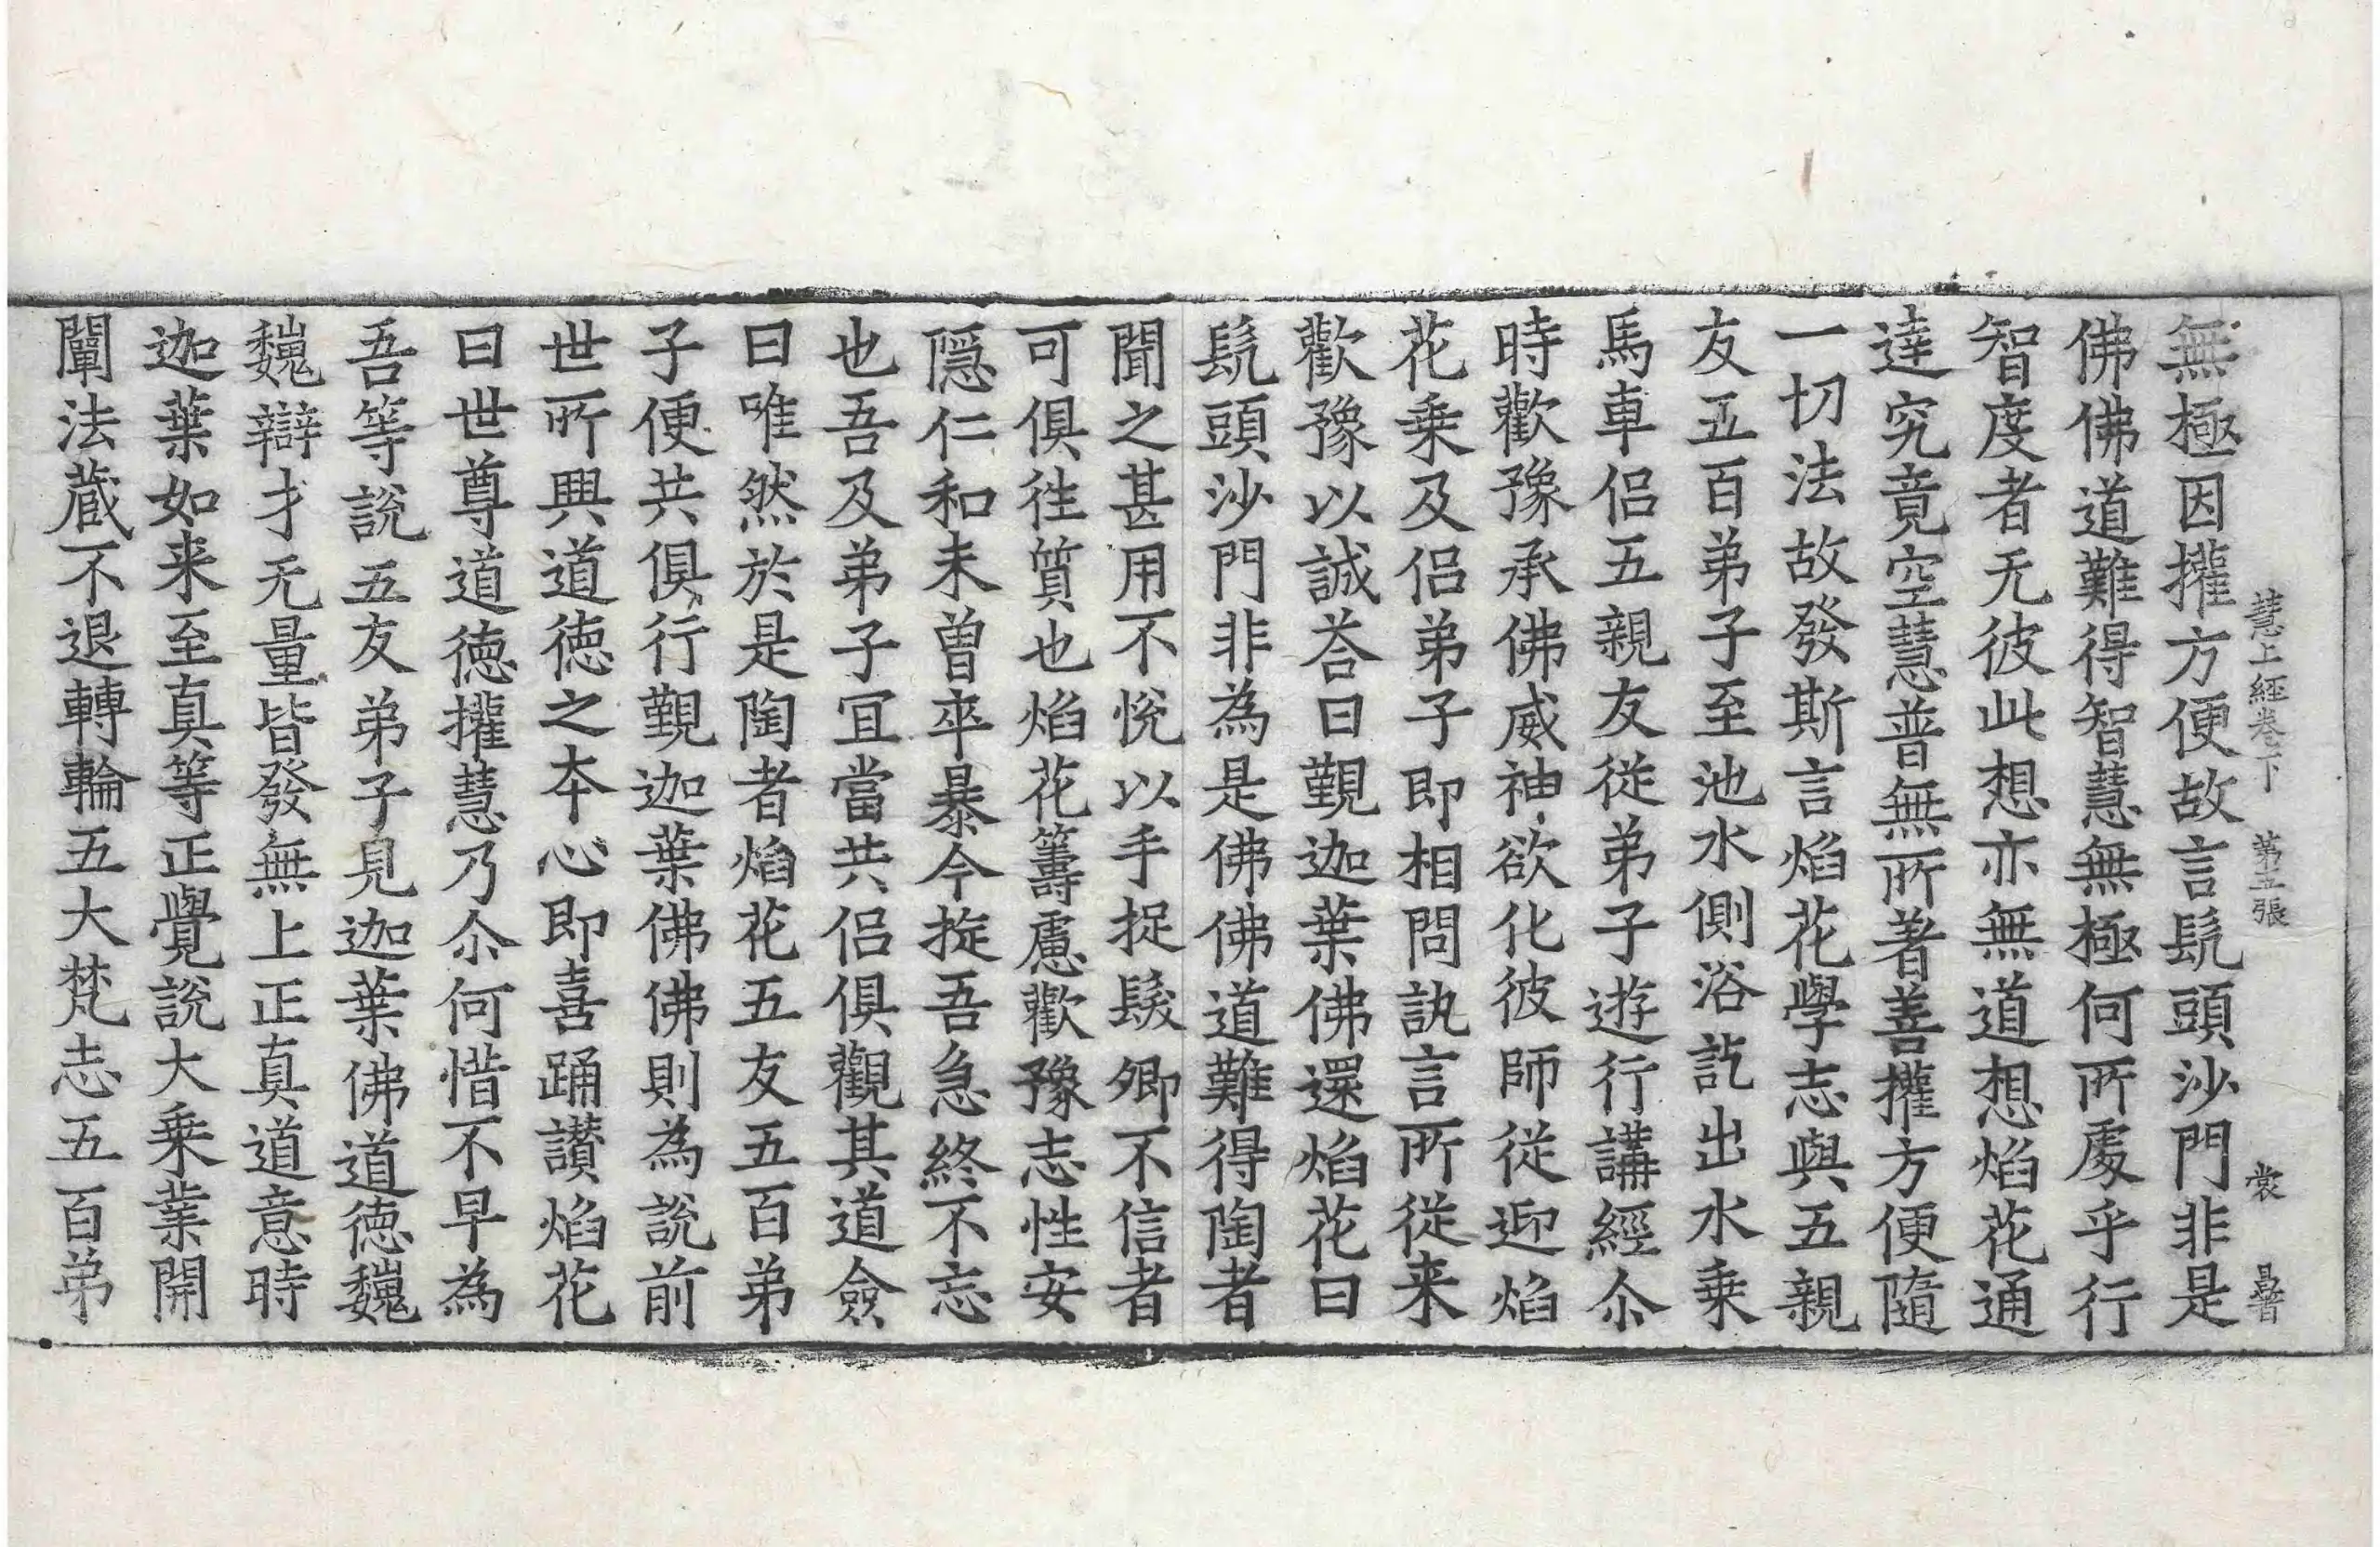 慧上經卷下 第五張 裳 昌普
無極因權方便故言髡頭沙門非是
佛佛道難得智慧無極何所處乎行
智度者无彼此想亦無道想焰花通
達究竟空慧普無所著善權方便隨
一切法故發斯言焰花學志與五親
友五百弟子至池水側浴訖出水乗
馬車侶五親友從弟子遊行講經尒
時歡豫承佛威神欲化彼師從迎焰
花乗及侶弟子即相問訊言所從来
歡豫以誠荅曰覲迦葉佛還焰花曰
髡頭沙門非為是佛佛道難得陶者
聞之甚用不悅以手捉髮卿不信者
可俱往質也焰花籌慮歡豫志性安
隱仁和未曽卒暴今捉吾急終不忘
也吾及弟子冝當共侣俱觀其道僉
曰唯然於是陶者焰花五友五百弟
子便共俱行覲迦葉佛佛則為說前
世所興道徳之本心即喜踊讃焰花
曰世尊道徳權慧乃尒何惜不早為
吾等說五友弟子見迦葉佛道徳巍
巍辯才无量皆發無上正真道意時
迦葉如来至真等正覺說大乗業開
闡法藏不退轉輪五大梵志五百弟